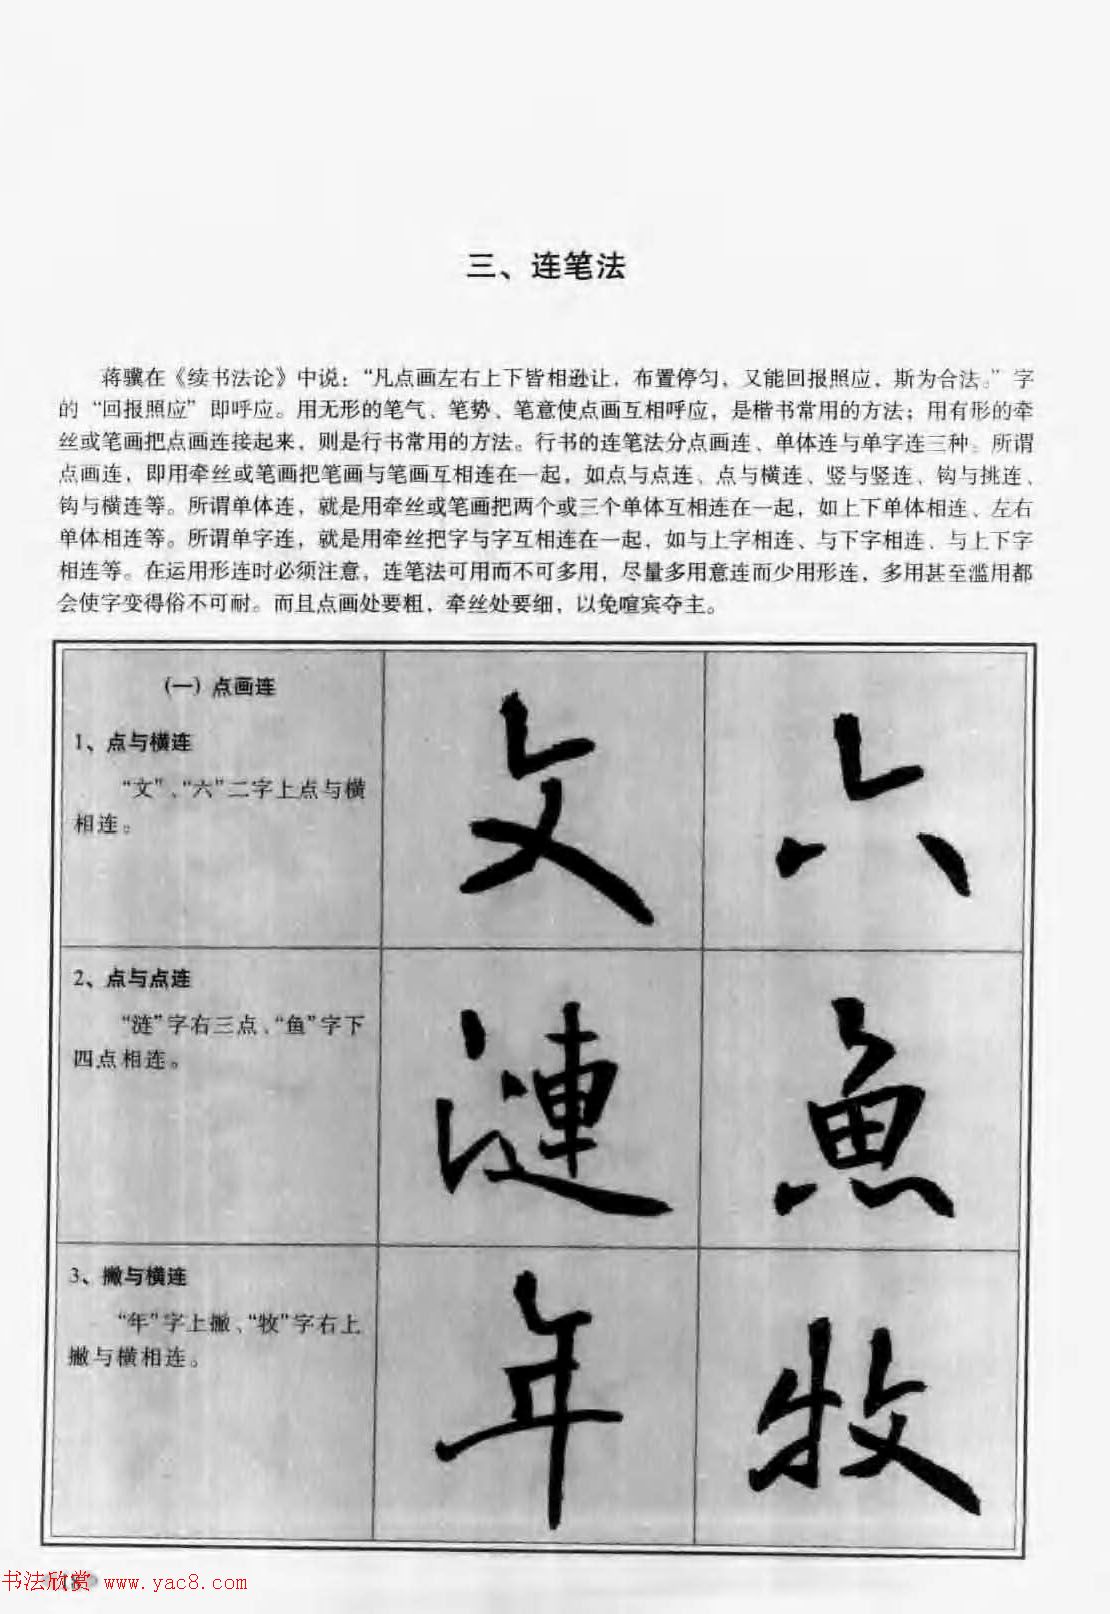 三、连笔法
蒋骥在《续书法论》中说：“凡点画左右上下皆相逊让，布置停匀，又能回报照应，斯为合法。”字
的“回报照应”即呼应。用无形的笔气、笔势、笔意使点画互相呼应，是楷书常用的方法；用有形的牵
丝或笔画把点画连接起来，则是行书常用的方法。行书的连笔法分点画连、单体连与单字连三种。所谓
点画连，即用牵丝或笔画把笔画与笔画互相连在一起，如点与点连、点与横连、竖与竖连、钩与挑连、
钩与横连等。所谓单体连，就是用牵丝或笔画把两个或三个单体互相连在一起，如上下单体相连、左右
单体相连等。所谓单字连，就是用牵丝把字与字互相连在一起，如与上字相连、与下字相连、与上下字
相连等。在运用形连时必须注意，连笔法可用而不可多用，尽量多用意连而少用形连，多用甚至滥用都
会使字变得俗不可耐。而且点画处要粗，牵丝处要细，以免喧宾夺主。
（一）点画连
1、点与横连
“文”、“六”二字上点与横
相连。
文
六
2、点与点连
“涟”字右三点、“鱼”字下
四点相连。
漣
魚
3、撇与横连
“年”字上撇、“牧”字右上
撇与横相连。
年
牧
书法欣赏 www.yac8.com